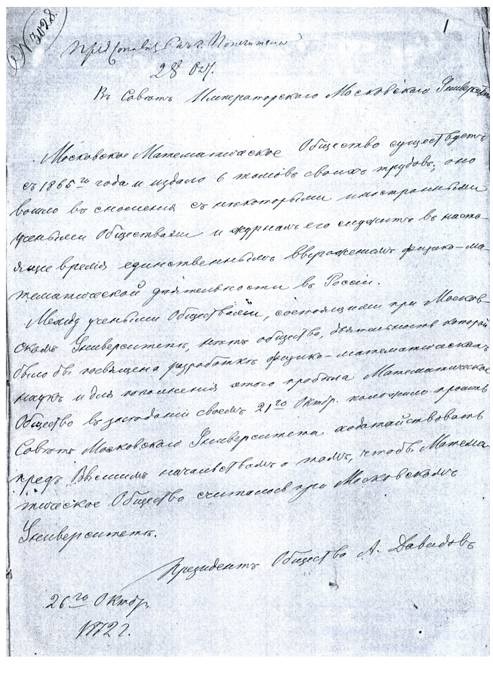 1
28 Окт.
Въ Совѣтъ Императорскаго Московскаго Университета
Московское Математическое Общество существуетъ
съ 1865го года и издало 6 томовъ своихъ трудовъ; оно
вошло въ сношенія съ нѣкоторыми иностранными
учеными Обществами и журналъ его служитъ въ насто-
ящее время единственнымъ выраженіемъ физико-ма-
тематической дѣятельности въ Россіи.
Между учеными Обществами, состоящими при Москов-
скомъ Университетѣ, нѣтъ общества, дѣятельность котораго
было бы посвящено разработкѣ физико-математическихъ
наукъ и для пополненія этого пробѣла Математическое
Общество въ засѣданіи своемъ 21го Октбр. положило просить
Совѣтъ Московскаго Университета ходатайствовать
предъ Высшимъ начальствомъ о томъ, чтобъ Матема-
тическое Общество считалось при Московскомъ
Университетѣ.
Президентъ Общества А. Давидовъ
26го Октбр.
1872 г.